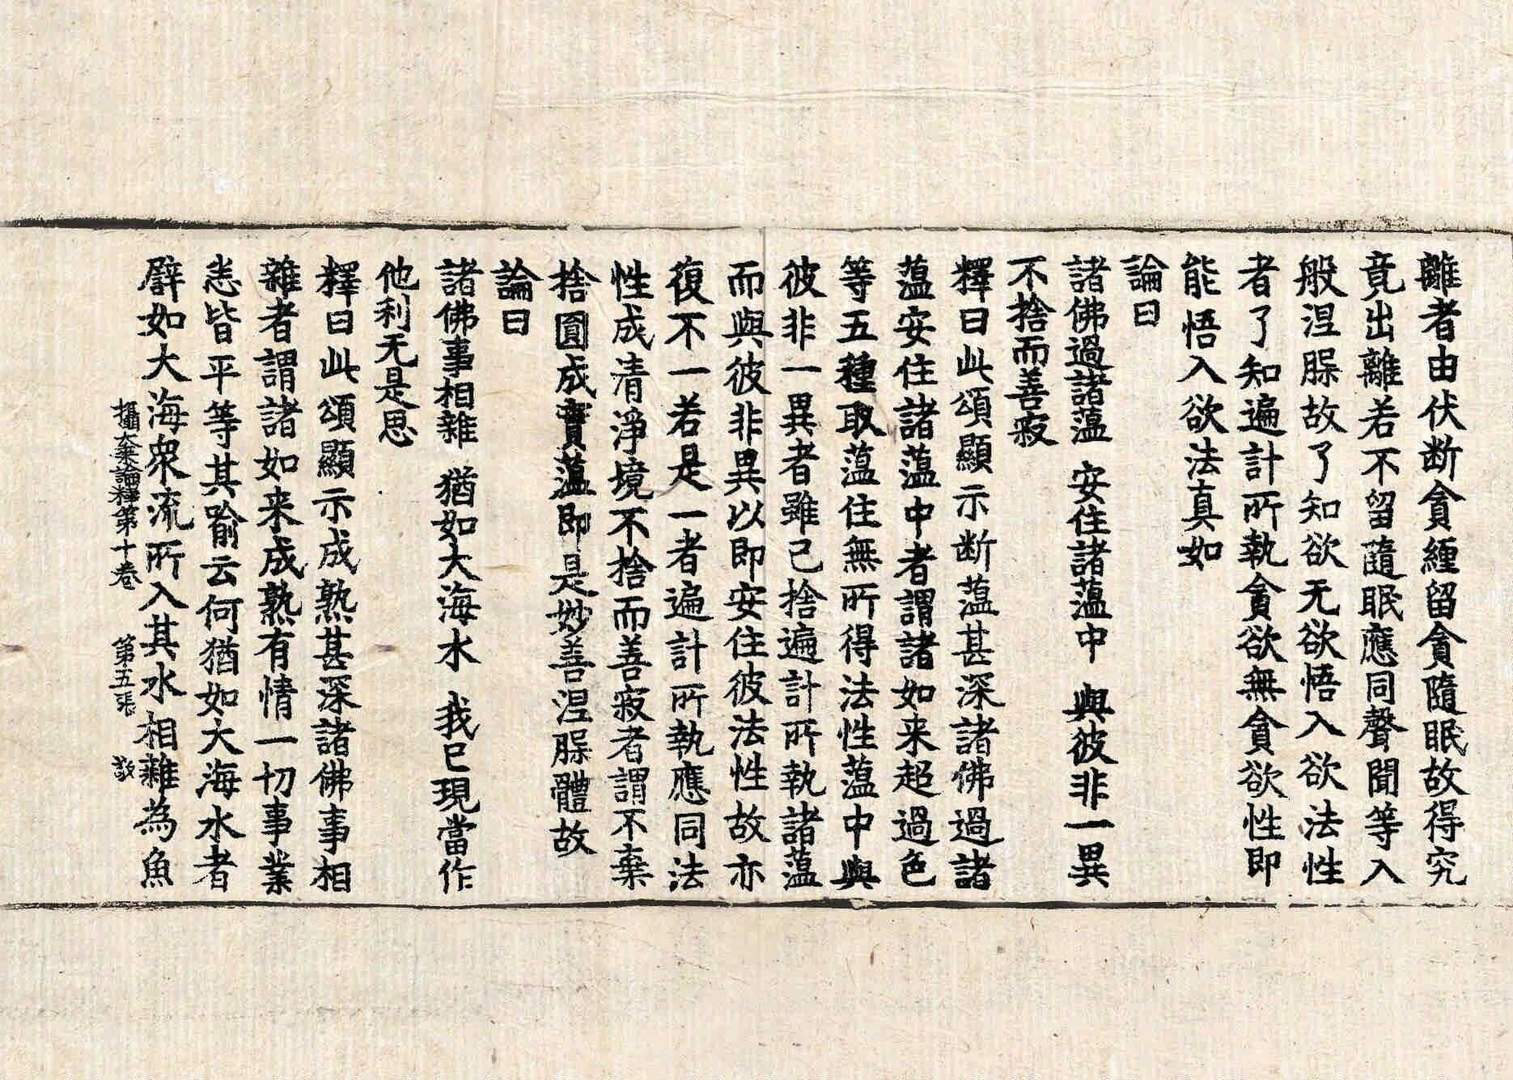 離者由伏断貪纏留貪隨眠故得究
竟出離若不留隨眠應同聲聞等入
般涅脲故了知欲无欲悟入欲法性
者了知遍計所執貪欲無貪欲性即
能悟入欲法真如
論曰
諸佛過諸薀　安住諸薀中　與彼非一異
不捨而善寂
釋曰此頌顯示断薀甚深諸佛過諸
薀安住諸薀中者謂諸如来超過色
等五種取薀住無所得法性薀中與
彼非一異者雖已捨遍計所執諸薀
而與彼非異以即安住彼法性故亦
復不一若是一者遍計所執應同法
性成清淨境不捨而善寂者謂不棄
捨圓成實薀即是妙善涅脲體故
論曰
諸佛事相雜　猶如大海水　我已現當作
他利无是思
釋曰此頌顯示成熟甚深諸佛事相
雜者謂諸如来成熟有情一切事業
恙皆平等其喻云何猶如大海水者
譬如大海衆流所入其水相雜為魚
攝大乘論釋第十卷　第五張　敬